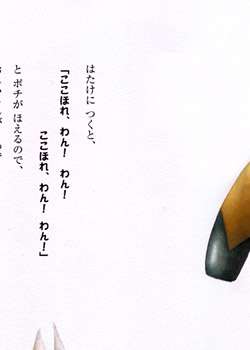 はたけに つくと、
「ここほれ、わん！ わん！
ここほれ、わん！ わん！」
と ポチが ほえるので、